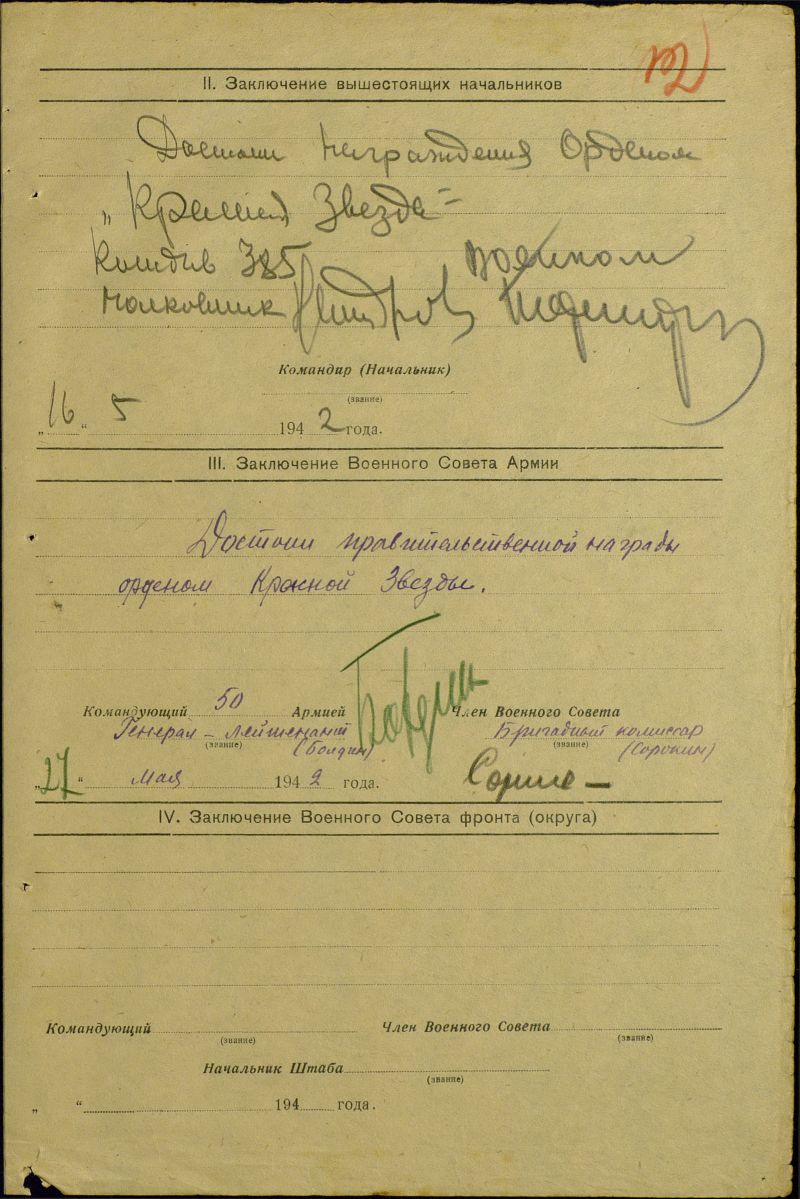 II. Заключение вышестоящих начальников
Достоин награждения Орденом
„Красная Звезда"
Комдив 385 военком
полковник
Командир (Начальник)
(звание)
„16“ 5 1942 года.
III. Заключение Военного Совета Армии
Достоин правительственной награды
орденом Красной Звезды.
Командующий 50 Армией Член Военного Совета
Генерал-лейтенант Бригадный комиссар
(звание) (Болдин) (звание) (Сорокин)
„27“ мая 1942 года.
IV. Заключение Военного Совета фронта (округа)
Командующий Член Военного Совета
(звание) (звание)
Начальник Штаба
(звание)
„ “ 194 года.